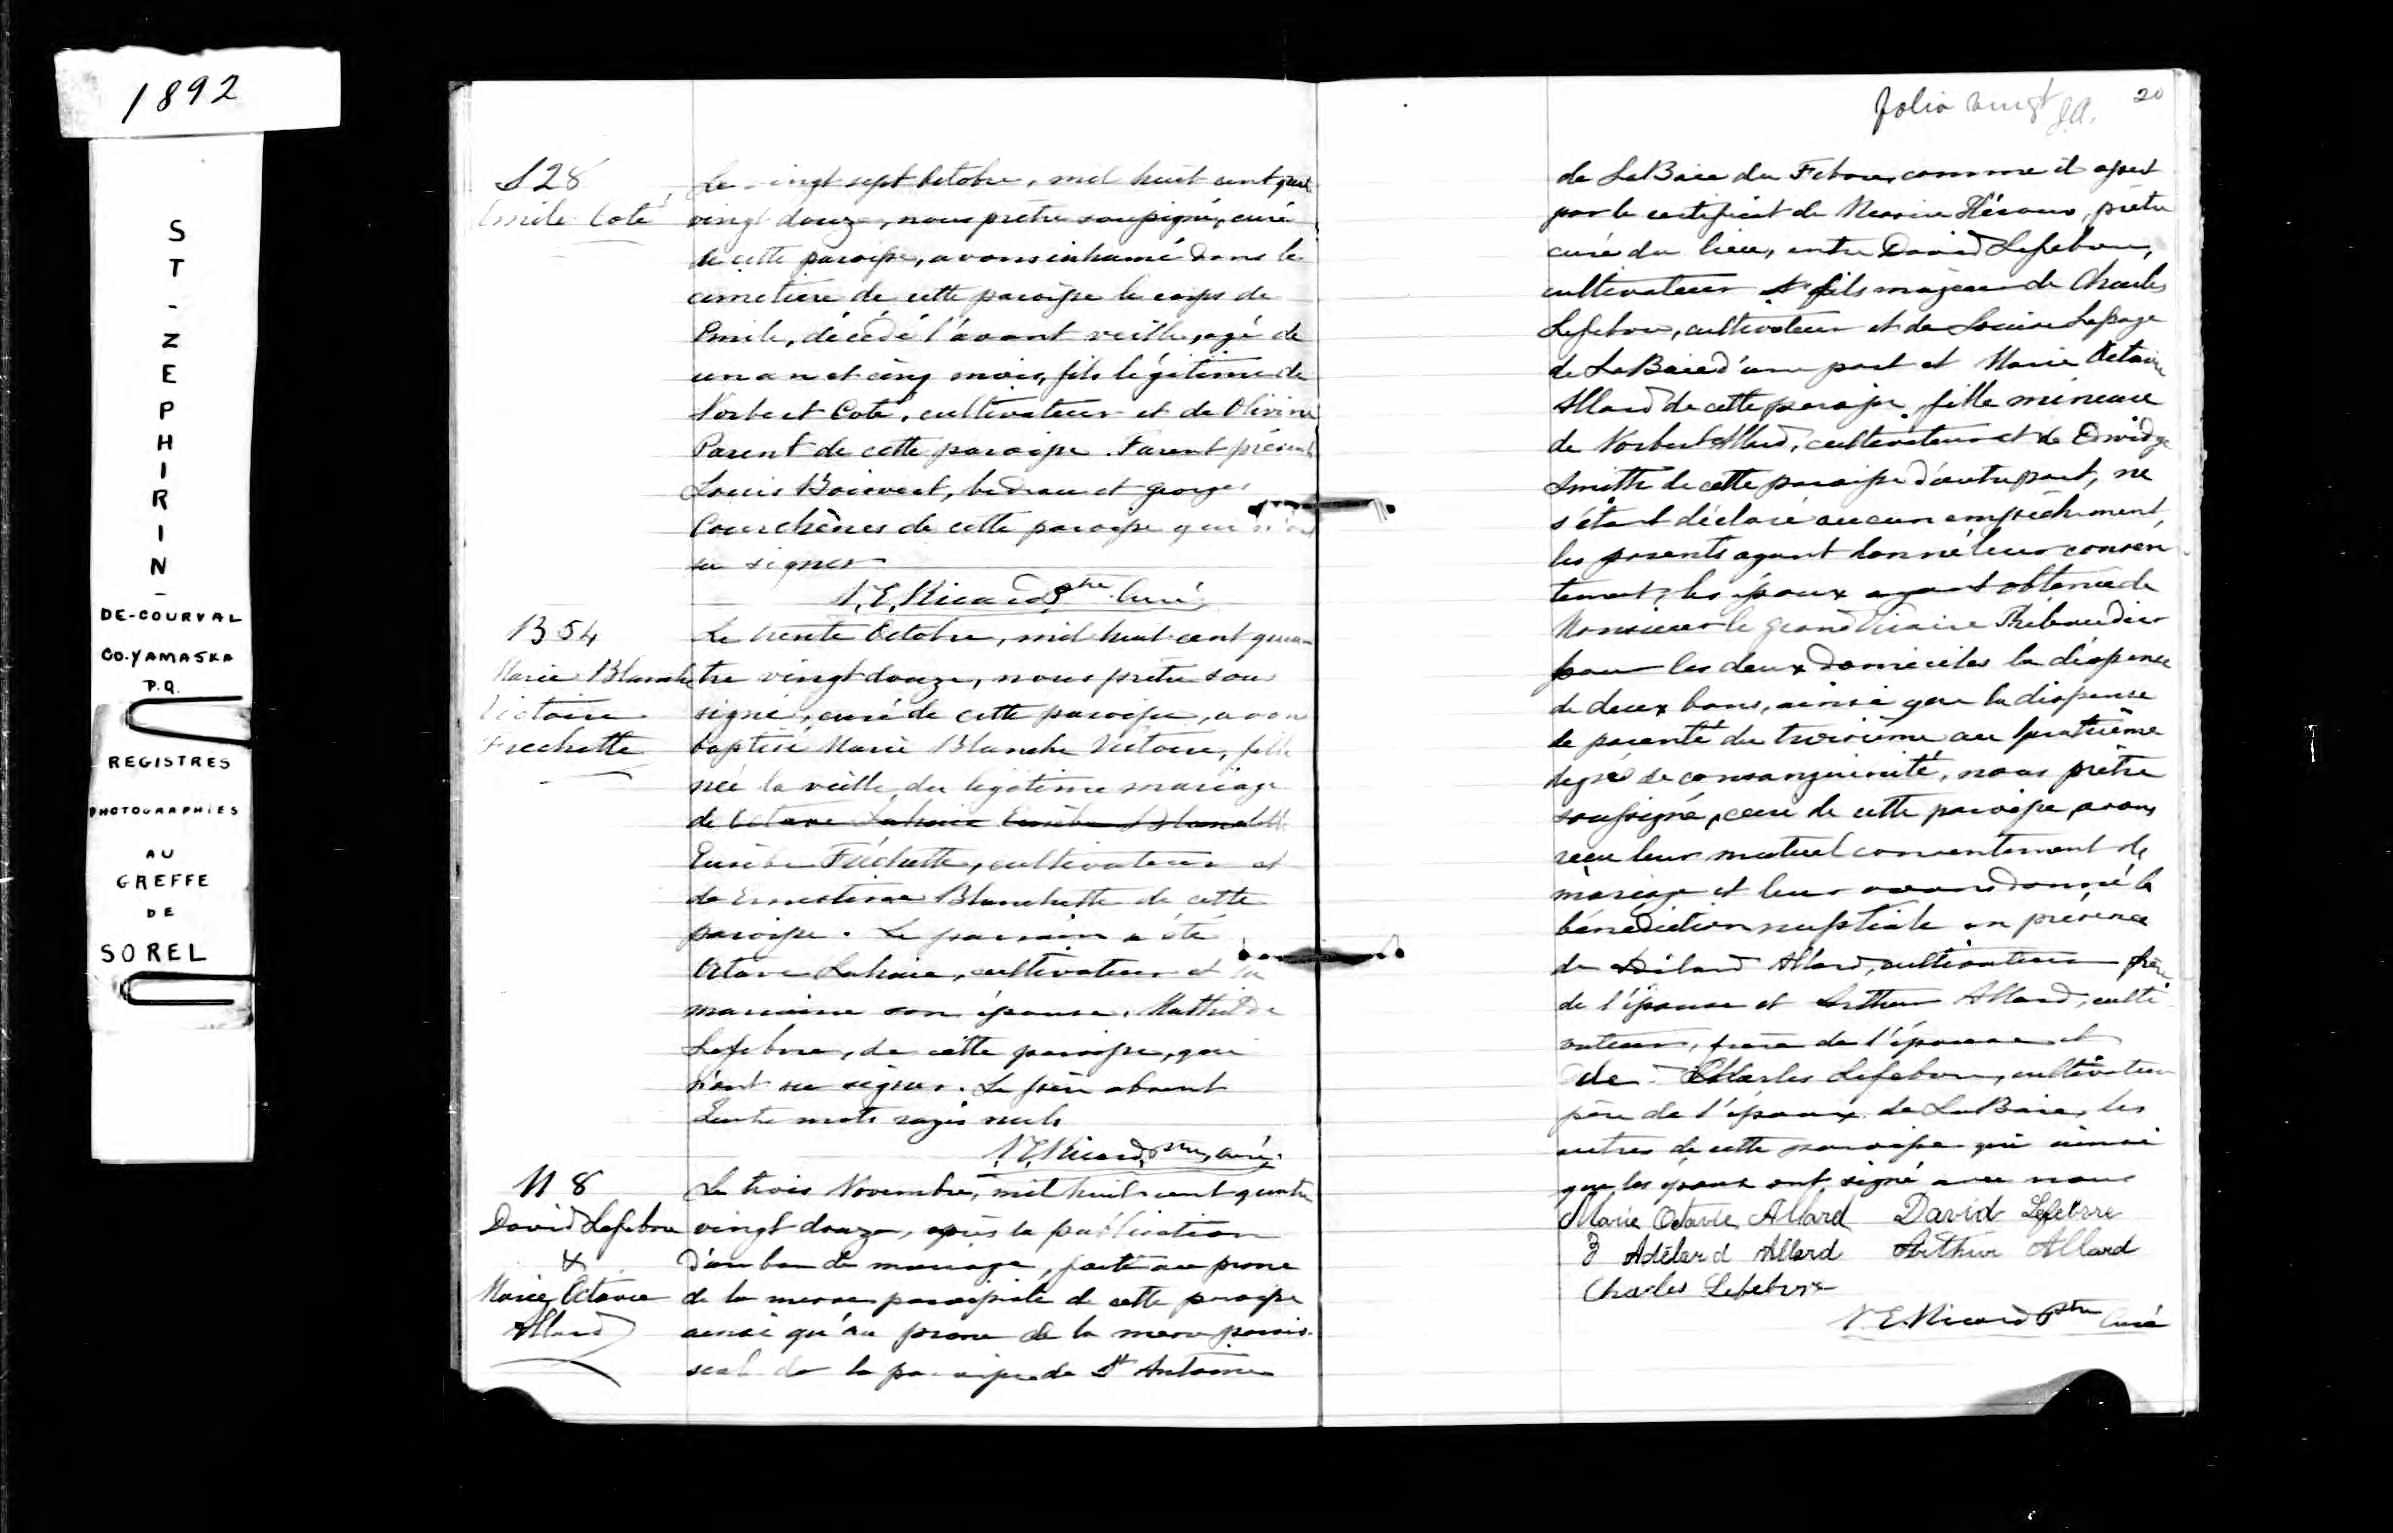 1892
ST-ZEPHIRIN-
DE-COURVAL
CO. YAMASKA
P.Q.
REGISTRES
PHOTOGRAPHIES
AU
GREFFE
DE
SOREL
S 28
Emile Coté
Le vingt sept Octobre, mil huit cent quatre
vingt douze, nous prêtre soussigné, curé
de cette paroisse, avons inhumé dans le
cimetière de cette paroisse le corps de
Emile, décédé l'avant veille, agé de
un an et cinq mois, fils légitime de
Norbert Coté, cultivateur et de Olivine
Parent de cette paroisse. Furent présents
Louis Boisvert, bedeau et Georges
Courchênes de cette paroisse qui n'ont
su signer
N. E. Ricard Ptre Curé
B 54
Marie Blanche
Victoire
Frechette
Le trente Octobre, mil huit cent qua-
tre vingt douze, nous prêtre sous
signé, curé de cette paroisse, avons
baptisé Marie Blanche Victoire, fille
née la veille, du légitime mariage
de Octave Lahaie Eusèbe Blanchette
Eusèbe Fréchette, cultivateur et
de Ernestine Blanchette de cette
paroisse. Le parrain a été
Octave Lahaie, cultivateur et la
marraine son épouse, Mathilde
Lefebvre, de cette paroisse, qui
n'ont su signer. Le père absent
mots rayés nuls
N. E. Ricard, Ptre, curé.
M 8
David Lefebvre
&
Marie Octavie
Allard
Le trois Novembre, mil huit cent quatre
vingt douze, après la publication
d'un ban de mariage, faite au prone
de la messe paroissiale de cette paroisse
ainsi qu'au prone de la messe parois-
siale de la paroisse de St Antoine
folio vingt J.A. 20
de LaBaie du Febvre, comme il apert
par le certificat de Messire Héroux, prêtre
curé du lieu, entre David Lefebvre,
cultivateur fils majeur de Charles
Lefebvre, cultivateur et de Louise Lepage
de LaBaie d'une part et Marie Octavie
Allard de cette paroisse, fille mineure
de Norbert Allard, cultivateur et de Edwidge
Smith de cette paroisse d'autre part, ne
s'étant déclaré aucun empêchement,
les parents ayant donné leur consen
tement, les époux ayant obtenu de
Monsieur le grand Vicaire Thibaudier
pour les deux domiciles la dispense
de deux bans, ainsi que la dispense
de parenté du troisième au quatrième
degré de consanguinité, nous prêtre
soussigné, curé de cette paroisse, avons
reçu leur mutuel consentement de
mariage et leur avons donné la
bénédiction nuptiale en présence
de Adélard Allard, cultivateur frère
de l'épouse et Arthur Allard, culti-
vateur, frère de l'épouse et
de Charles Lefebvre, cultivateur
père de l'époux de LaBaie, les
autres de cette paroisse qui ainsi
que les époux ont signé avec nous
Marie Octavie Allard David Lefebvre
J Adélard Allard Arthur Allard
Charles Lefebvre
N. E. Ricard Ptre Curé